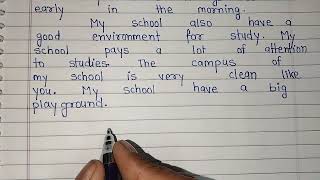 early in the morning.
My school also have a
good environment for study. My
school pays a lot of attention
to studies. The campus of
my school is very clean like
you. My school have a big
play ground.